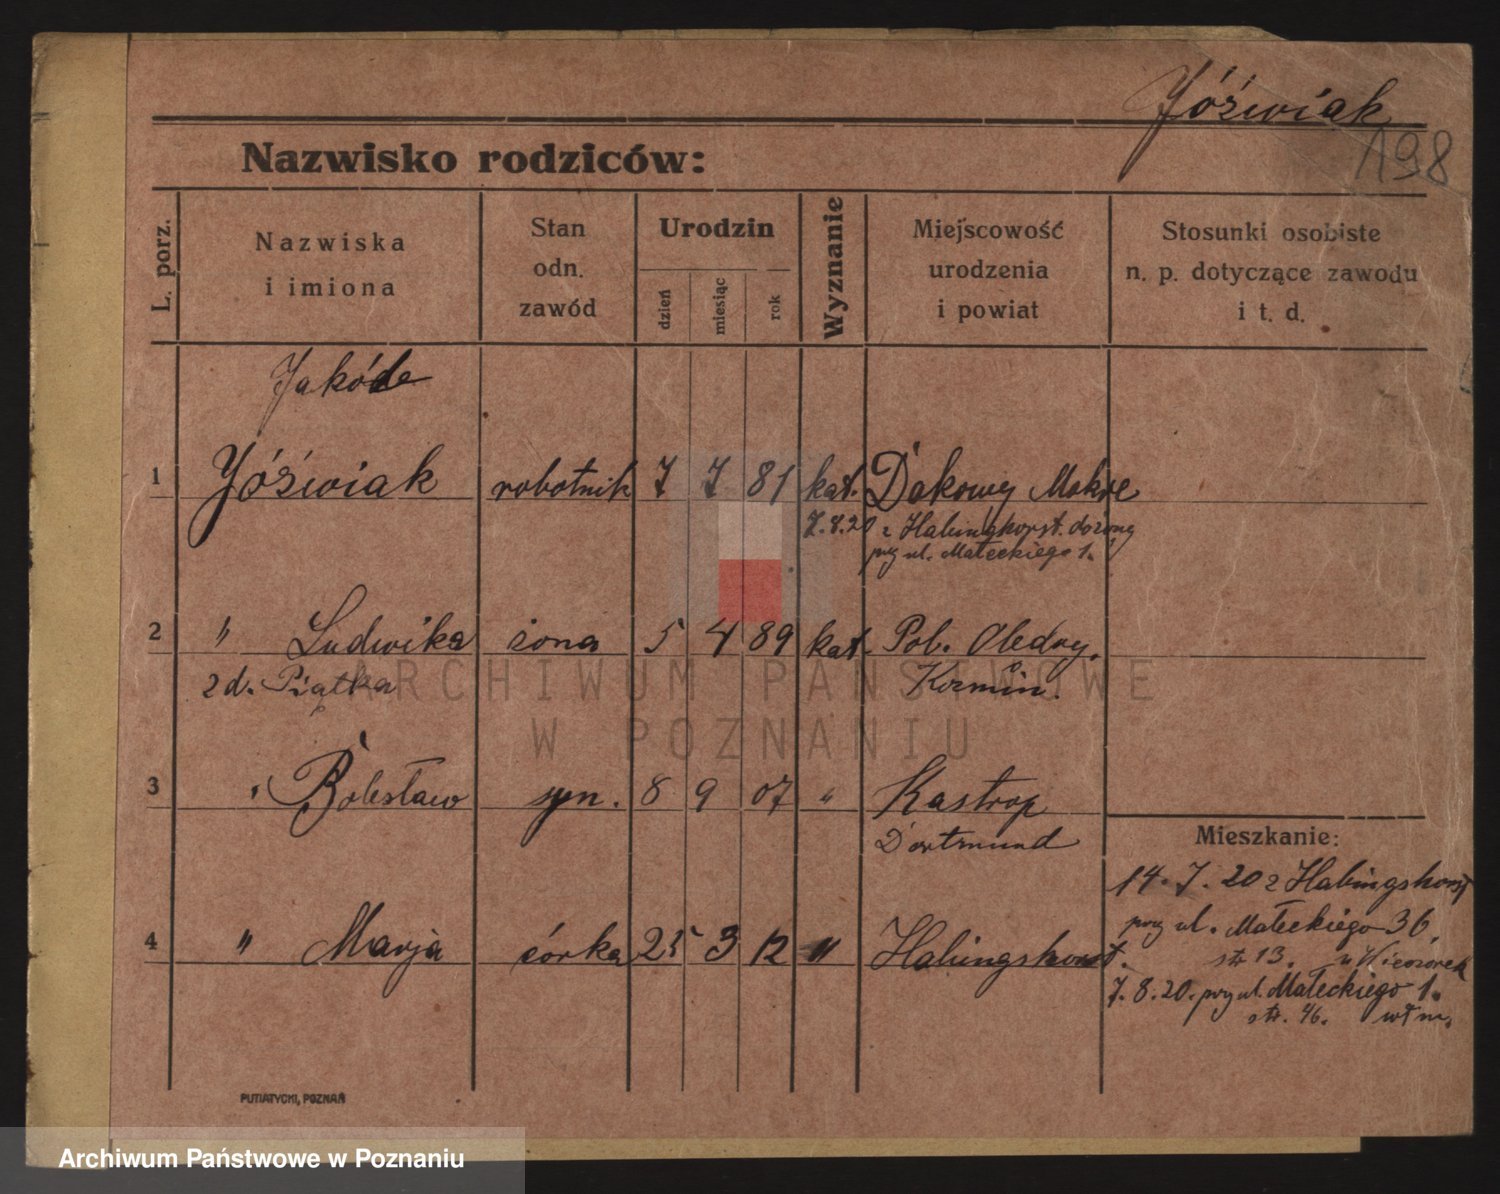 Jóźwiak
198
Nazwisko rodziców:
L. porz.
Nazwiska
i imiona
Stan
odn.
zawód
Urodzin
dzień
miesiąc
rok
Wyznanie
Miejscowość
urodzenia
i powiat
Stosunki osobiste
n. p. dotyczące zawodu
i t. d.
Jakób
1 Jóźwiak robotnik 7 7 81 kat. Dakowy Mokre
7.8.20 z Habinghorst do żony
przy ul. Małeckiego 1.
2 " Ludwika żona 5 4 89 kat. Pol. Olędry.
z d. Piątka Koźmin.
3 " Bolesław syn. 8 9 07 " Kastrop
Dortmund
4 " Marja córka 25 3 12 " Habingshorst.
Mieszkanie:
14. 7. 20 z Habingshorst
przy ul. Małeckiego 36
str 13. u Wieczorek
7. 8. 20. przy ul. Małeckiego 1.
str. 46. włm.
PUTIATYCKI, POZNAŃ
ARCHIWUM PAŃSTWOWE
W POZNANIU
Archiwum Państwowe w Poznaniu